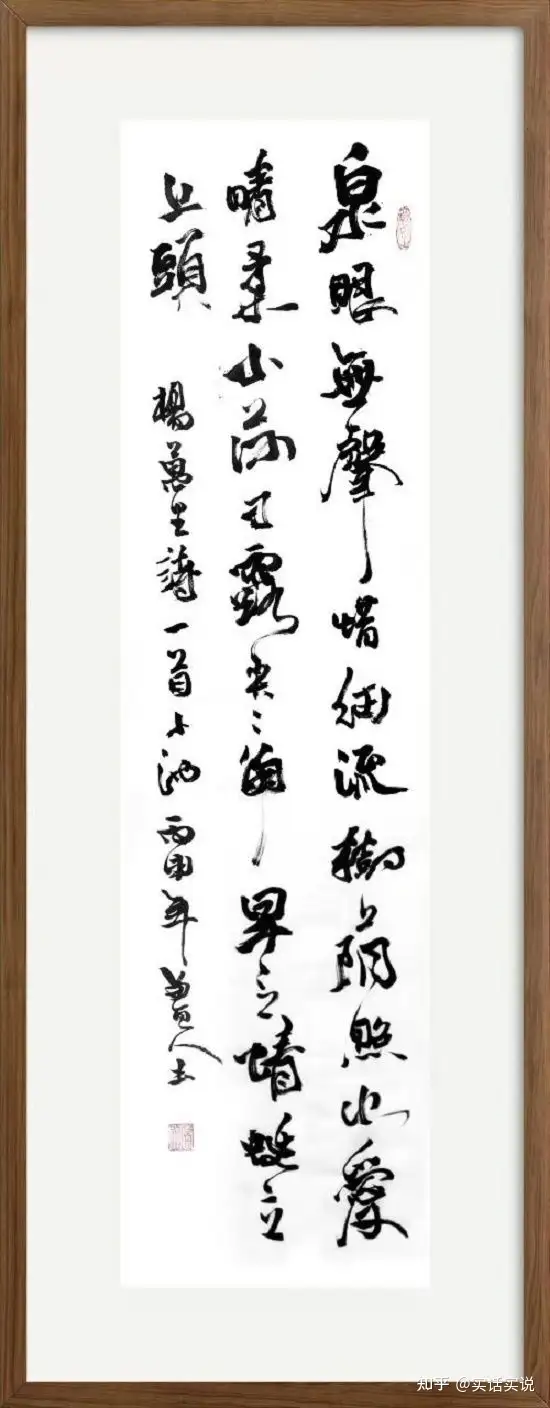 泉眼無聲惜細流樹蔭照水愛
晴柔小荷才露尖〻角早有蜻蜓立
上頭 楊萬里詩一首 丙申年
知乎 @实话实说